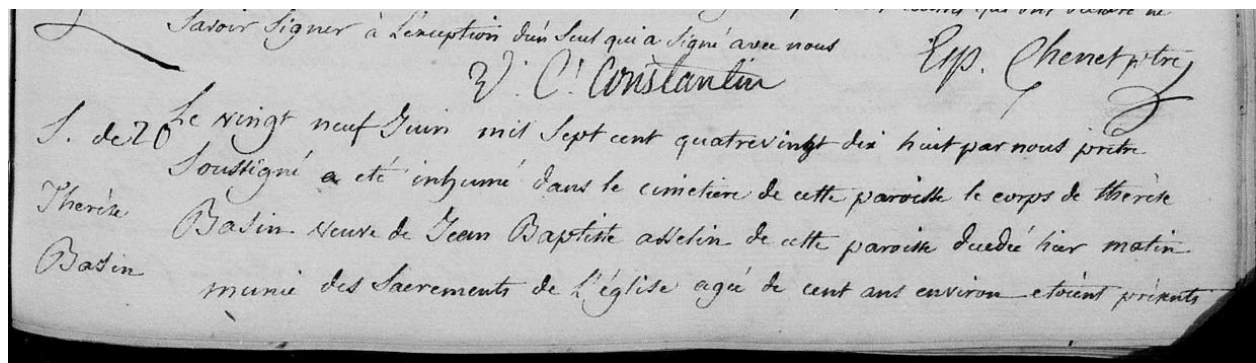 savoir signer à L'exception d'un seul qui a signé avec nous
Chenet ptre
Constantin
S. de 20 Le vingt neuf Juin mil Sept cent quatrevingt dix huit par nous pretre
Soussigné a eté inhumé dans le cimetiere de cette paroisse le corps de thérèse
Thérèse
Basin veuve de Jean Baptiste asselin de cette paroisse decedé hier matin
Basin
munie des Sacrements de L'église agée de cent ans environ etoient présents